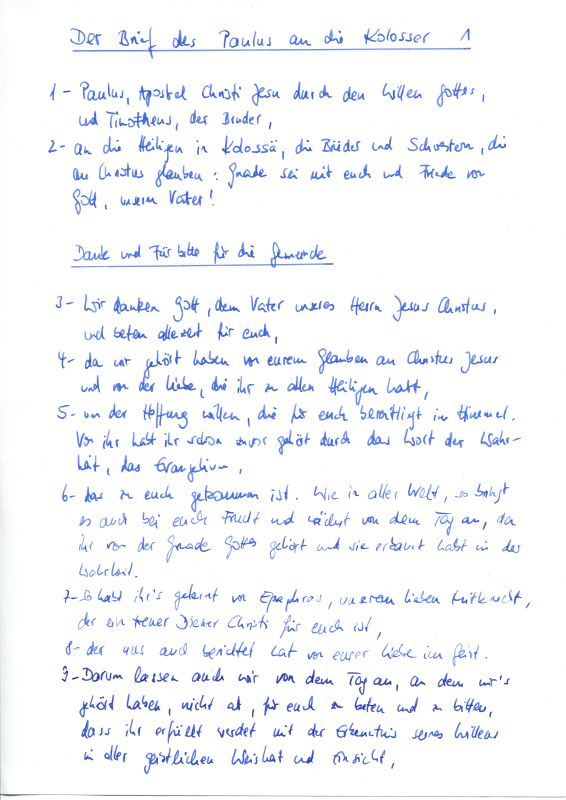 Der Brief des Paulus an die Kolosser 1
1 - Paulus, Apostel Christi Jesu durch den Willen Gottes,
und Timotheus, der Bruder,
2 - an die Heiligen in Kolossä, die Brüder und Schwestern, die
an Christus glauben: Gnade sei mit euch und Friede von
Gott, unserm Vater!
Dank und Fürbitte für die Gemeinde
3 - Wir danken Gott, dem Vater unseres Herrn Jesus Christus,
und beten allezeit für euch,
4 - da wir gehört haben von eurem Glauben an Christus Jesus
und von der Liebe, die ihr zu allen Heiligen habt,
5 - um der Hoffnung willen, die für euch bereitliegt im Himmel.
Von ihr habt ihr schon zuvor gehört durch das Wort der Wahr-
heit, das Evangelium,
6 - das zu euch gekommen ist. Wie in aller Welt, so bringt
es auch bei euch Frucht und wächst von dem Tag an, da
ihr von der Gnade Gottes gehört und sie erkannt habt in der
Wahrheit.
7 - so habt ihr's gelernt von Epaphras, unserem lieben Mitknecht,
der ein treuer Diener Christi für euch ist,
8 - der uns auch berichtet hat von eurer Liebe im Geist.
9 - Darum lassen auch wir von dem Tag an, an dem wir's
gehört haben, nicht ab, für euch zu beten und zu bitten,
dass ihr erfüllt werdet mit der Erkenntnis seines Willens
in aller geistlichen Weisheit und Einsicht,